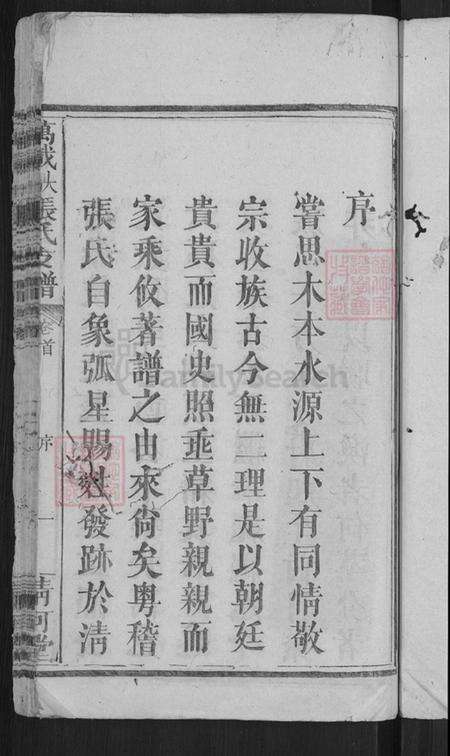 序
嘗思木本水源上下有同情敬
宗收族古今無二理是以朝廷
貴貴而國史照垂草野親親而
家乘攸著譜之由來尚矣粵稽
張氏自象弧星賜姓發跡於清
萬載 張氏支譜
卷首
序
一
清河堂
FamilySearch